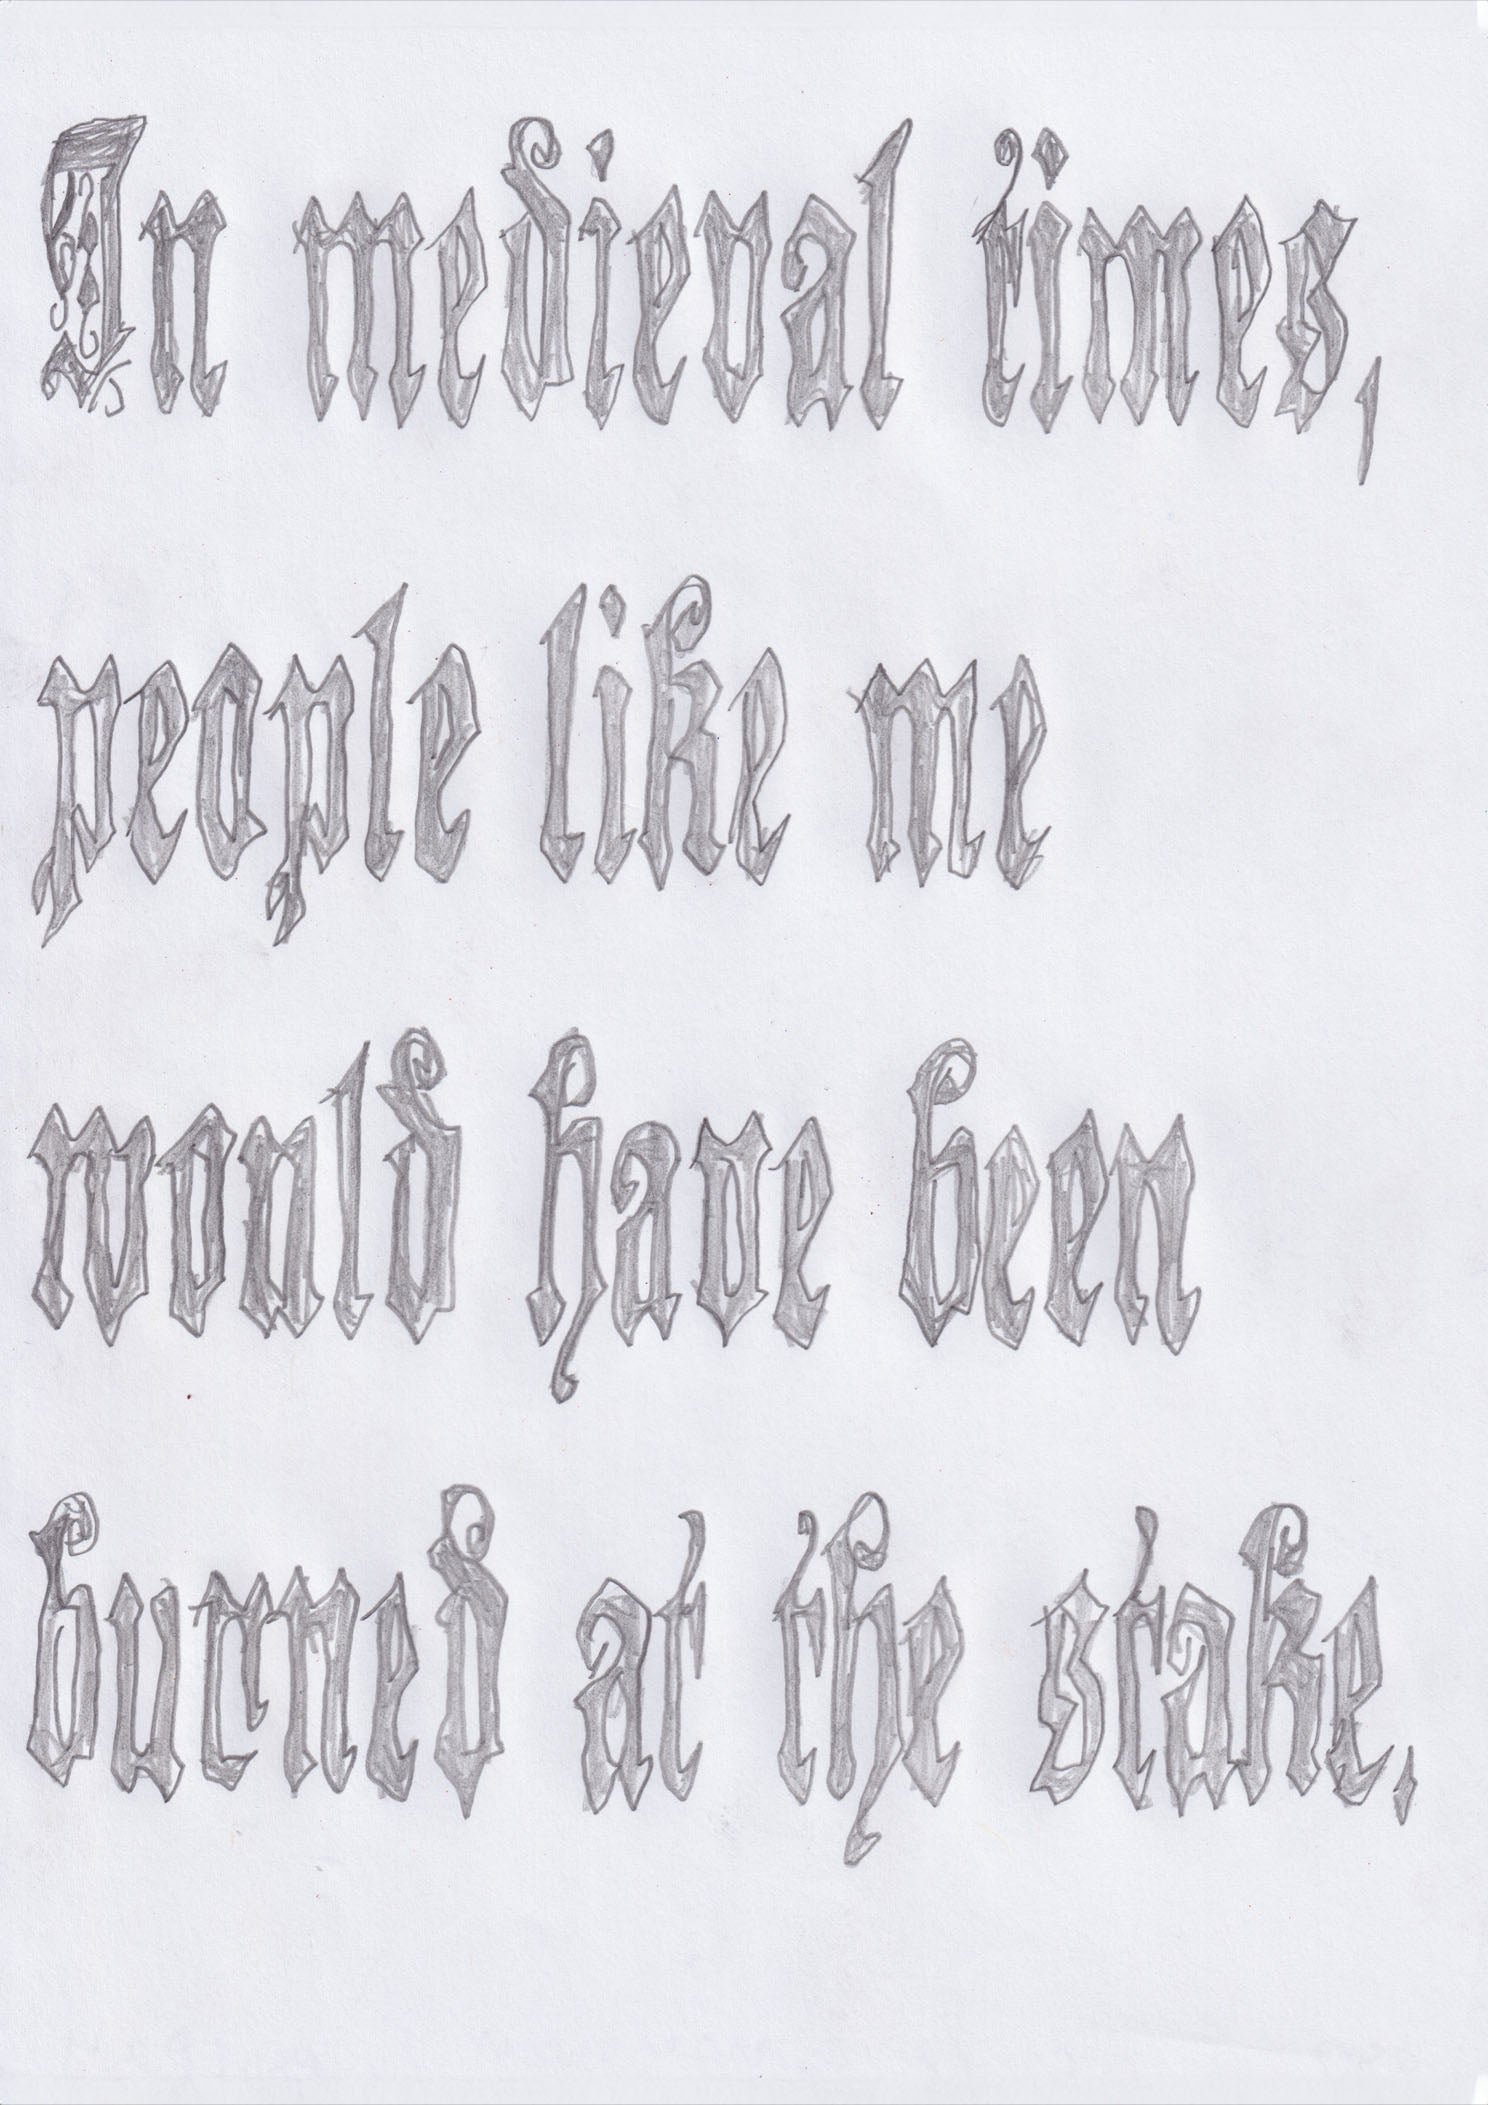 In medieval times,
people like me
would have been
burned at the stake.